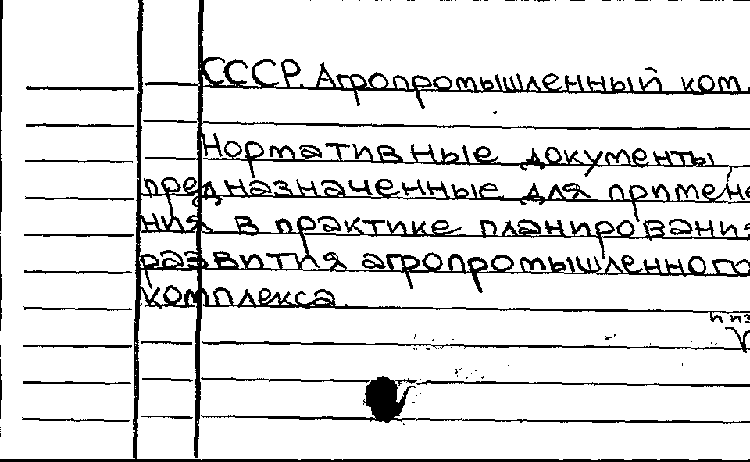 СССР. Агропромышленный ком.
Нормативные документы,
предназначенные для примене
ния в практике планирования
развития агропромышленного
комплекса.